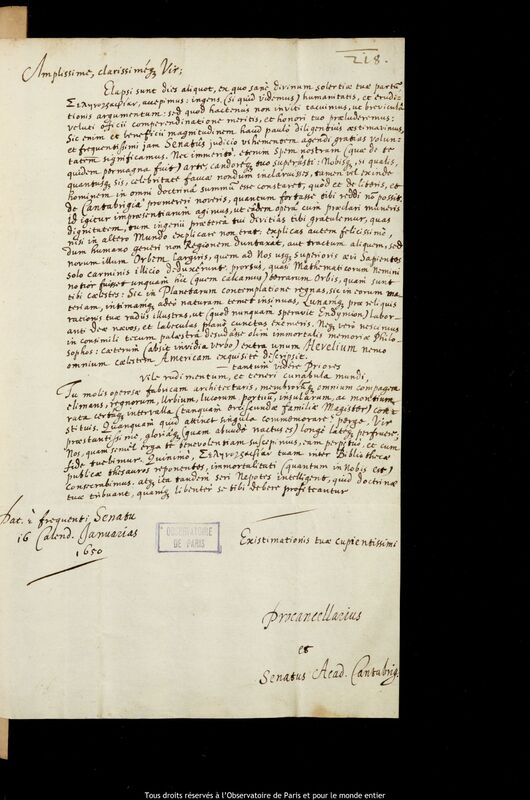 218.
Amplissime, clarissiméq; Vir;
Elapsi sunt dies aliquot, ex quo sanè divinum solertiae tuae partū
Σεληνογραφίαν, accepimus: ingens (si quid videmus) humanitatis, et erudi-
tionis argumentum: sed quod hactenus non inviti tacuimus, ut breviculâ
veluti officii comperendinatione meritis, et honori tuo praeluderemus:
Sic enim et beneficii magnitudinem haud paulò diligentiùs aestimavimus,
et frequentissimi jam Senatûs judicio vehementem agendi gratias volun-
tatem significamus. Nec immeritò: etenim spem nostram (quae de te
quidem permagna fuit) arte, candoreq; tuo superâsti: Nobisq; si qualis,
quantusq; sis, celebritate famae nondum inclaruisses, tamen vel exinde
hominem in omni doctrinâ summū esse constaret, quod et de literis, et
de Cantabrigiâ promereri noveris, quantum fortasse tibi reddi nō possit.
Id igitur impraesentiarum agimus, ut eâdem operâ cùm praeclari muneris
dignitatem, tum ingenii praetereà tui divitias tibi gratulemur, quas
nisi in altero Mundo explicare non erat, explicas autem felicissimè,
dum humano generi non Regionem duntaxat, aut tractum aliquem, sed
novum illum Orbem largiris, quem ad Nos usq; superioris aevi Sapientes
Solo carminis illicio deduxerunt, prorsus, quasi Mathematicorum Nemini
notior fuisset unquam hic (quem calcamus) terrarum Orbis, quàm sunt
tibi caelestes: Sic in Planetarum contemplatione regnas, sic in eorum ma-
teriam, intimamq; adeò naturam temet insinuas, Lunamq; prae reliquis
rationis tuae radiis illustras, ut (quod nunquam speravit Endymion) labo-
ranti deae naevos, et labeculas planè cunctas exemeris. Neq; verò nescimus
in consimili ticum palaestrâ desudâsse olim immortalis memoriae Philo-
sophos: caeterùm (absit invidia verbo) extra unum Hevelium nemo
omnium caelestem Americam exquisitè descripsit.
— tantùm vidêre Priores
vile rudimentum, et teneri cunabula mundi,
Tu molis operosae fabricam architectaris, membrorūq; omnium compagem
elimans, regnorum, Urbium, lucorum, pontiū, insularum, ac montium
rata certaq; intervalla (tanquam erciscundae familiae Magister) con-
stituis. Quanquam quid attinet singula commemorare? perge Vir
praestantissime, gloriâq; (quam abundè nactus es) longè latéq; perfruere,
Nos, quam semèl erga te benevolentiam suscepimus, eam perpetuò, et cum
fide tuebimur. Quinimo, Σεληνογραφίαν tuam inter Bibliothecae
publicae thesauros reponentes, immortalitati (quantum in Nobis est)
consecrabimus. atq; ita tandem seri Nepotes intelligent, quid doctrinae
tuae tribuant, quamq; libenter se tibi debere profiteantur
Dat. è frequenti Senatu
16 Calend. Januarias
1650
OBSERVATOIRE
DE PARIS
Existimationis tuae cupientissimi
Procancellarius
et
Senatus Acad. Cantabrig.
Tous droits réservés à l'Observatoire de Paris et pour le monde entier